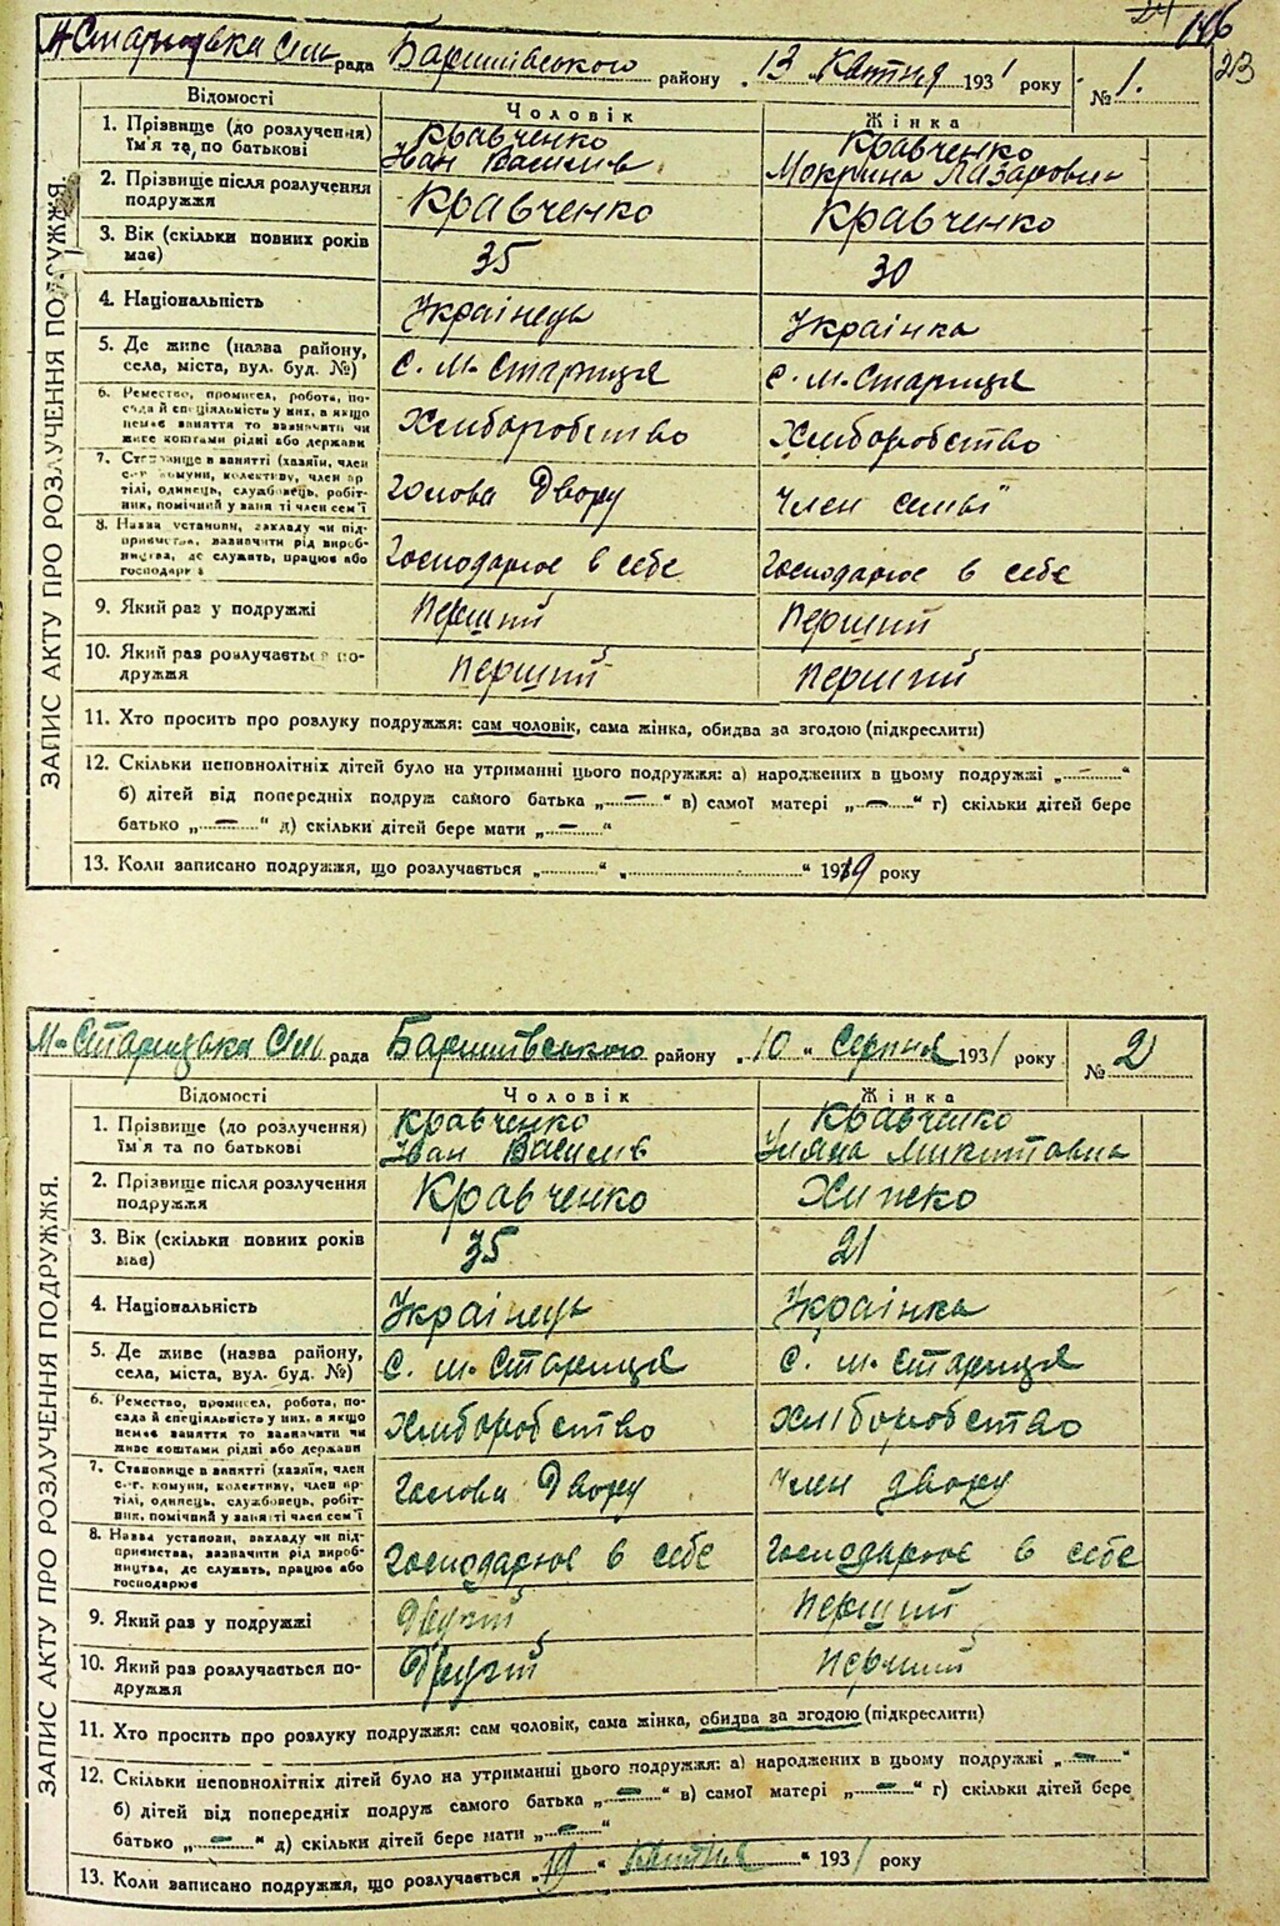 146
24
23
М Старицька Сіль рада Баришівського району „13 Квітня 1931 року №1.
Відомості Чоловік Жінка
1. Прізвище (до розлучення) Кравченко Кравченко
Їм'я та по батькові Іван Василів Мокрина Лазаровна
2. Прізвище після розлучення Кравченко Кравченко
подружжя
3. Вік (скільки повних років 35 30
має)
4. Національність Українець Українка
5. Де живе (назва району, С. М. Стариця С. М. Стариця
села, міста, вул. буд. №)
6. Ремество, промисел, робота, по-
сада й спеціяльність у них, а якщо Хліборобство Хліборобство
немає заняття то зазначити чи
живе коштами рідні або держави
7. Становище в занятті (хазяїн, член
с-г. комуни, колективу, член ар- Голова Двору Член семьї
тілі, одинець, службовець, робіт-
ник, помічний у занятті член сем'ї
8. Назва установи, закладу чи під-
приємства, зазначити рід вироб- Господарює в себе Господарює в себе
ництва, де служить, працює або
господарює
9. Який раз у подружжі Перший Перший
10. Який раз розлучається по- Перший Перший
дружжя
11. Хто просить про розлуку подружжя: сам чоловік, сама жінка, обидва за згодою (підкреслити)
12. Скільки неповнолітніх дітей було на утриманні цього подружжя: а) народжених в цьому подружжі „—“
б) дітей від попередніх подруж самого батька „—“ в) самої матері „—“ г) скільки дітей бере
батько „—“ д) скільки дітей бере мати „—“
13. Коли записано подружжя, що розлучається „ “ „ “ 1919 року
ЗАПИС АКТУ ПРО РОЗЛУЧЕННЯ ПОДРУЖЖЯ.
М-Старицька Сіль рада Баришівського району „10“ Серпня 1931 року №2
Відомості Чоловік Жінка
1. Прізвище (до розлучення) Кравченко Кравченко
Їм'я та по батькові Іван Василів Уляна Микитовна
2. Прізвище після розлучення Кравченко
подружжя
3. Вік (скільки повних років 35 21
має)
4. Національність Українець Українка
5. Де живе (назва району, С. М. Стариця С. М. Стариця
села, міста, вул. буд. №)
6. Ремество, промисел, робота, по-
сада й спеціяльність у них, а якщо Хліборобство Хліборобство
немає заняття то зазначити чи
живе коштами рідні або держави
7. Становище в занятті (хазяїн, член
с-г. комуни, колективу, член ар- Голова Двору Член двору
тілі, одинець, службовець, робіт-
ник, помічний у занятті член сем'ї
8. Назва установи, закладу чи під-
приємства, зазначити рід вироб- Господарює в себе Господарює в себе
ництва, де служить, працює або
господарює
9. Який раз у подружжі Другий Перший
10. Який раз розлучається по- Другий Перший
дружжя
11. Хто просить про розлуку подружжя: сам чоловік, сама жінка, обидва за згодою (підкреслити)
12. Скільки неповнолітніх дітей було на утриманні цього подружжя: а) народжених в цьому подружжі „—“
б) дітей від попередніх подруж самого батька „—“ в) самої матері „—“ г) скільки дітей бере
батько „—“ д) скільки дітей бере мати „—“
13. Коли записано подружжя, що розлучається „19“ Квітня“ 1931 року
ЗАПИС АКТУ ПРО РОЗЛУЧЕННЯ ПОДРУЖЖЯ.